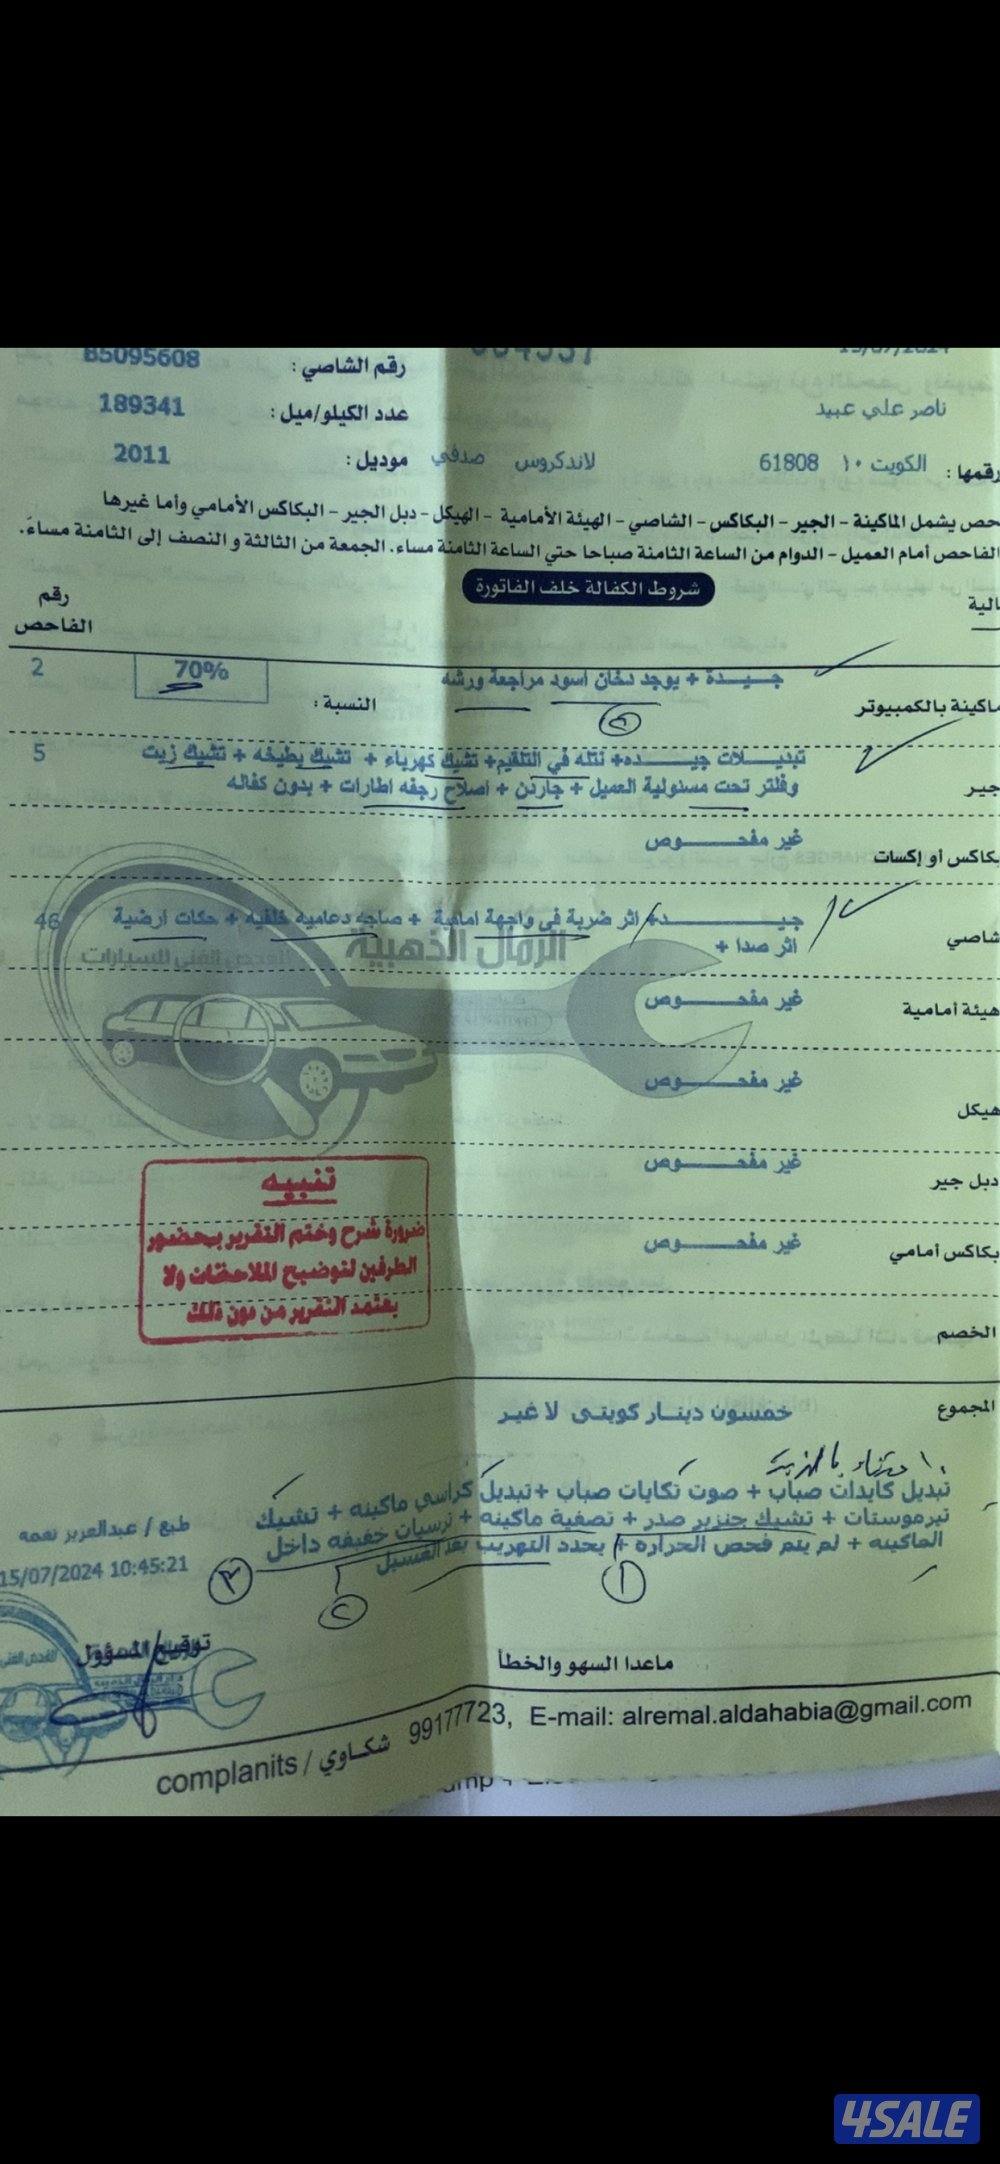 15/07/2024
B5095608 رقم الشاصي :
ناصر علي عبيد
189341 عدد الكيلو/ميل :
رقمها : الكويت ١٠ 61808 لاندكروس صدفي
موديل : 2011
حص يشمل الماكينة - الجير - البكاكس - الشاصي - الهيئة الأمامية - الهيكل - دبل الجير - البكاكس الأمامي وأما غيرها
الفاحص أمام العميل - الدوام من الساعة الثامنة صباحا حتي الساعة الثامنة مساء. الجمعة من الثالثة و النصف إلى الثامنة مساءً.
شروط الكفالة خلف الفاتورة
الية
رقم الفاحص
ماكينة بالكمبيوتر جيـــدة + يوجد دخان اسود مراجعة ورشه
النسبة : 70% 2
جير تبديـــلات جيــــده+ نتله في التلقيم+ تشيك كهرباء + تشيك بطيخه + تشيك زيت 5
وفلتر تحت مسئولية العميل + جاردن + اصلاح رجفه اطارات + بدون كفاله
بكاكس أو إكسات غير مفحـــــوص
شاصي جيــــــد+ اثر ضربة في واجهة امامية + صاجه دعاميه خلفيه + حكات ارضية 46
اثر صدا +
الرمال الذهبية
للفحص الفني للسيارات
هيئة أمامية غير مفحـــــوص
هيكل غير مفحـــــوص
دبل جير غير مفحـــــوص
بكاكس أمامي غير مفحـــــوص
تنبيه
ضرورة شرح وختم التقرير بحضور
الطرفين لتوضيح الملاحظات ولا
يعتمد التقرير من دون ذلك
الخصم
المجموع خمسون دينـار كويتى لا غيـر
تبديل كايدات صباب + صوت تكايات صباب +تبديل كراسي ماكينه + تشيك
تيرموستات + تشيك جنزير صدر + تصفية ماكينه + ترسبات خفيفه داخل
الماكينه + لم يتم فحص الحراره + يحدد التهريب بعد الغسيل
١
٢
٣
طبع / عبدالعزيز نعمه
15/07/2024 10:45:21
توقيع المسؤول
ماعدا السهو والخطأ
complanits / شكاوي 99177723, E-mail: alremal.aldahabia@gmail.com
4SALE